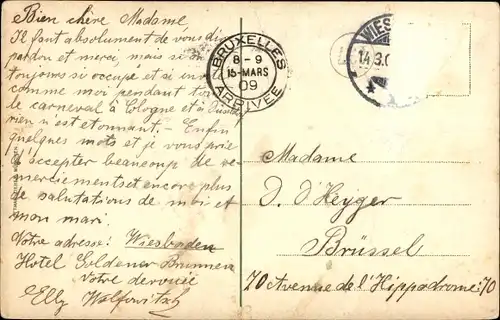 Bien chère Madame
Il faut absolument de vous dire
pardon et merci, mais si on
toujours si occupé et si
comme moi pendant
le carneval à Cologne et à
rien n'est etonnant. – Enfin
quelques mots et je vous prie
d'accepter beaucoup de re-
merciements et encore plus
de salutations de moi et
mon mari.
Votre adresse: Wiesbaden
Hotel Goldener Brunnen
votre devouée
Elly
BRUXELLES
8 – 9
15 – MARS
09
ARRIVÉE
WIES
14.3.0
Madame
D. d'Heyger
Brüssel
70 Avenue de l'Hippodrome: 70